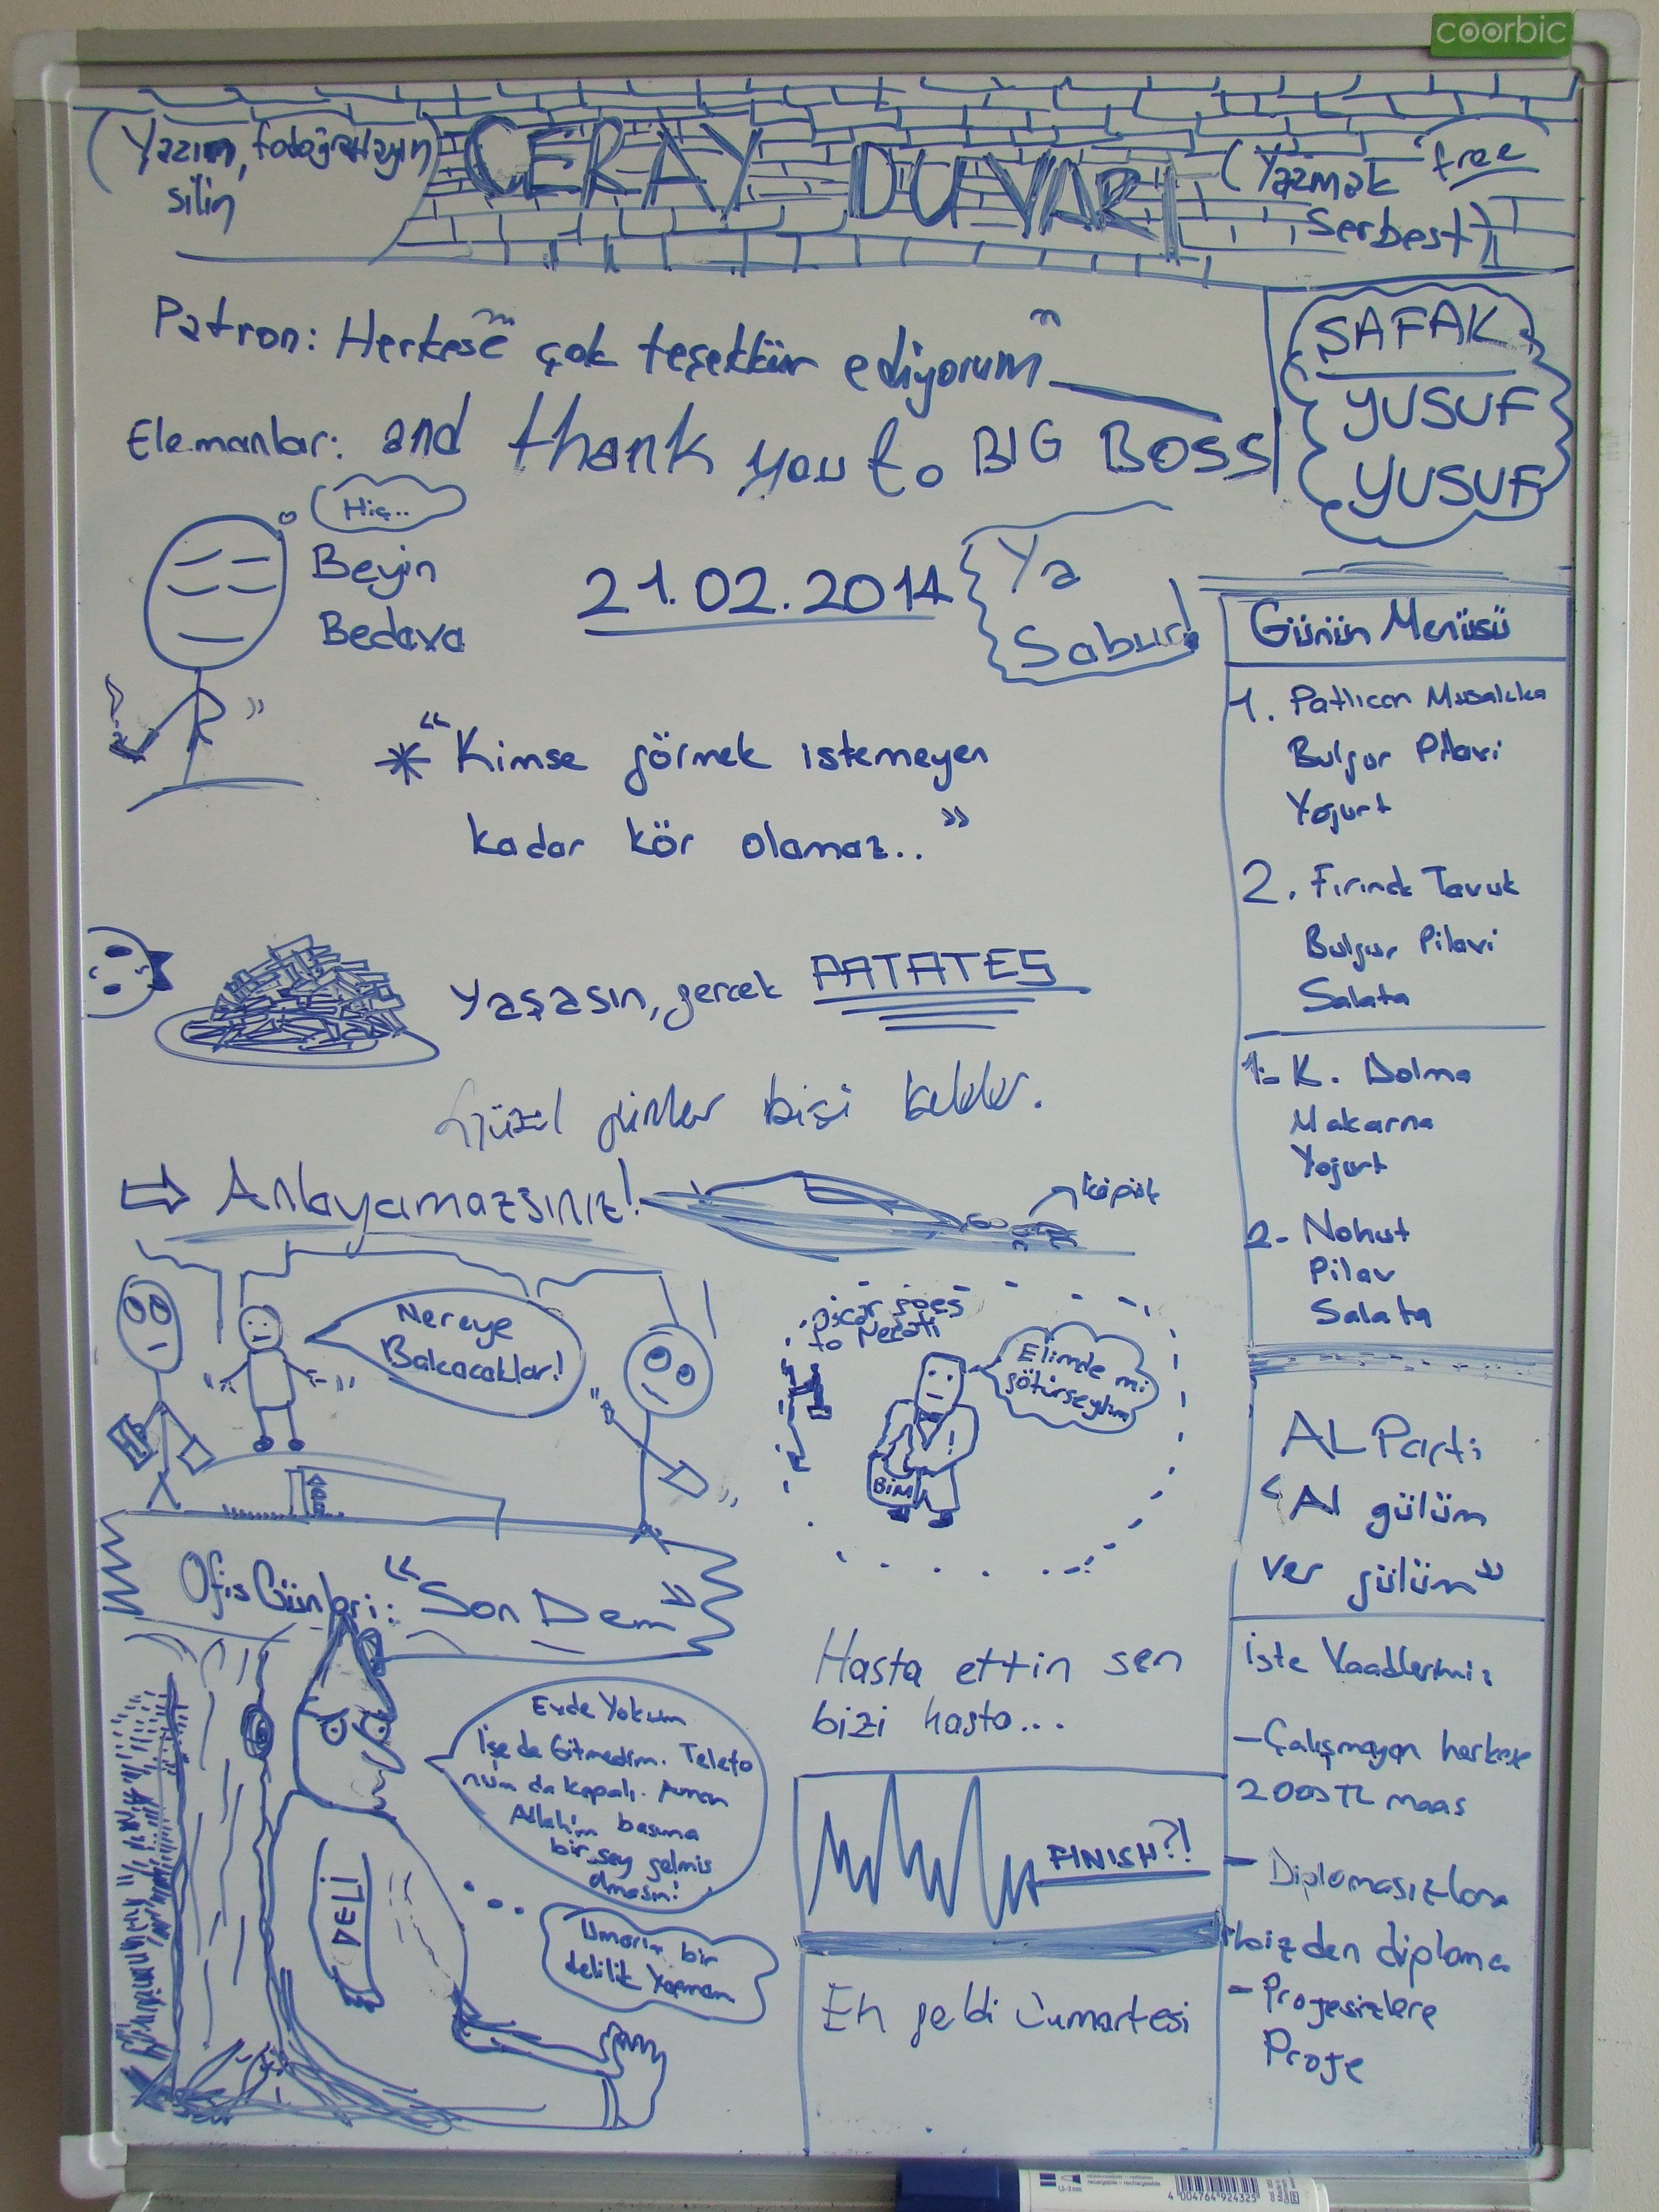 coorbic
(Yazın, fotoğraflayın)
silin
CERAY DUVARI
(Yazmak "free"
Serbest)
Patron: "Herkese çok teşekkür ediyorum"
Elemanlar: and thank you to BIG BOSS
ŞAFAK
YUSUF
YUSUF
Hiç..
Beyin
Bedava
21.02.2014
Ya
Sabur!
* "Kimse görmek istemeyen
kadar kör olamaz.."
Yaşasın, gerçek PATATES
Güzel günler bişi
⇨ Anlayamazsınız!
köpük
Nereye
Bakacaklar!
oscar goes
to Necati
Elimde mi
götürseydim
BİM
Ofis Günleri: "Son Dem"
Evde Yokum
İşe de Gitmedim. Telefo
num da kapalı. Aman
Allah'ım başıma
bir şey gelmiş
olmasın!
DELİ
Umarım bir
delilik yapmam
Hasta ettin sen
bizi hasta...
FINISH?!
Eh geldi Cumartesi
Günün Menüsü
1. Patlıcan Musakka
Bulgur Pilavi
Yogurt
2. Fırında Tavuk
Bulgur Pilavi
Salata
1- K. Dolma
Makarna
Yogurt
2- Nohut
Pilav
Salata
AL Parti
"Al gülüm
ver gülüm"
İşte Vaadlerimiz
-Çalışmayan herkese
2000 TL maaş
- Diplomasızlara
bizden diploma
- Projesizlere
Proje
4 004764 924325